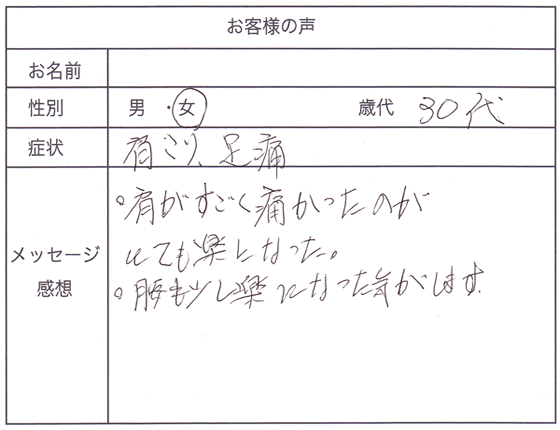 お客様の声
お名前
性別 男・女 歳代 30代
症状 肩こり、足痛
メッセージ
感想
。肩がすごく痛かったのが
とても楽になった。
。腰も少し楽になった気がします。